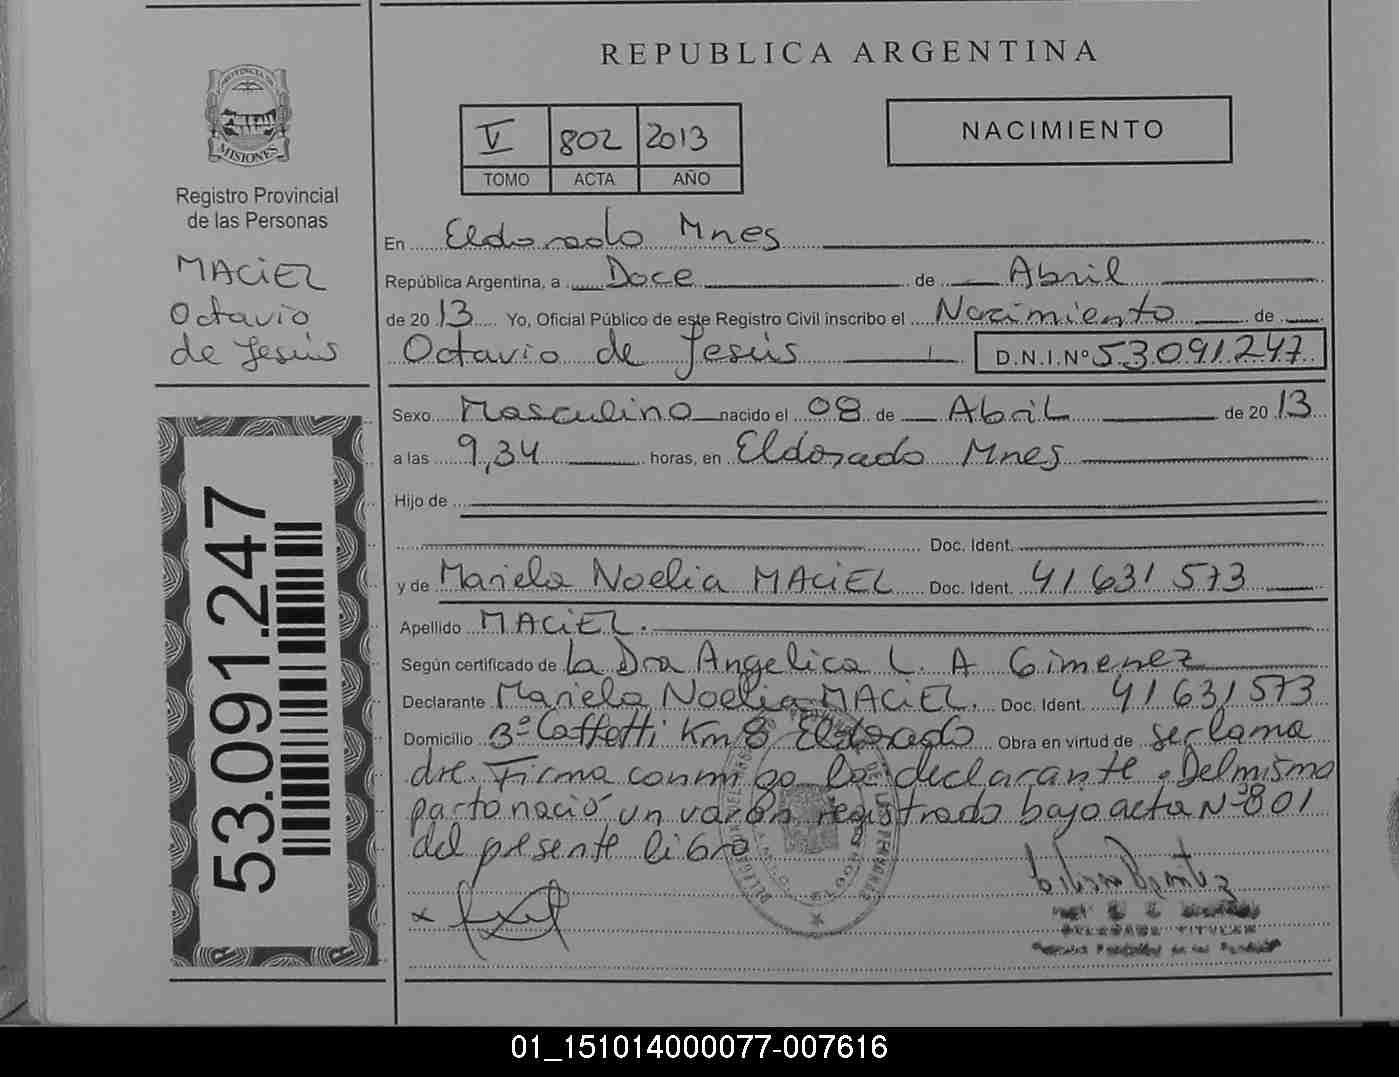 REPUBLICA ARGENTINA
PROVINCIA DE
MISIONES
Registro Provincial
de las Personas
MACIEL
Octavio
de Jesús
V 802 2013
TOMO ACTA AÑO
NACIMIENTO
En Eldorado Mnes
República Argentina, a Doce de Abril
de 2013 Yo, Oficial Público de este Registro Civil inscribo el Nacimiento de
Octavio de Jesús D.N.I.Nº 53091247
Sexo Masculino nacido el 08 de Abril de 2013
a las 9,34 horas, en Eldorado Mnes
Hijo de
Doc. Ident.
y de Mariela Noelia MACIEL Doc. Ident. 41 631 573
Apellido MACIEL.
Según certificado de La Dra Angelica L. A Gimenez
Declarante Mariela Noelia MACIEL. Doc. Ident. 41 631 573
Domicilio 3º Caffetti Km 8 Eldorado Obra en virtud de ser la ma
dre. Firma conmigo la declarante. Del mismo
parto nació un varón registrado bajo acta Nº 801
del presente libro
53.091.247
DELEGADA TITULAR
01_151014000077-007616